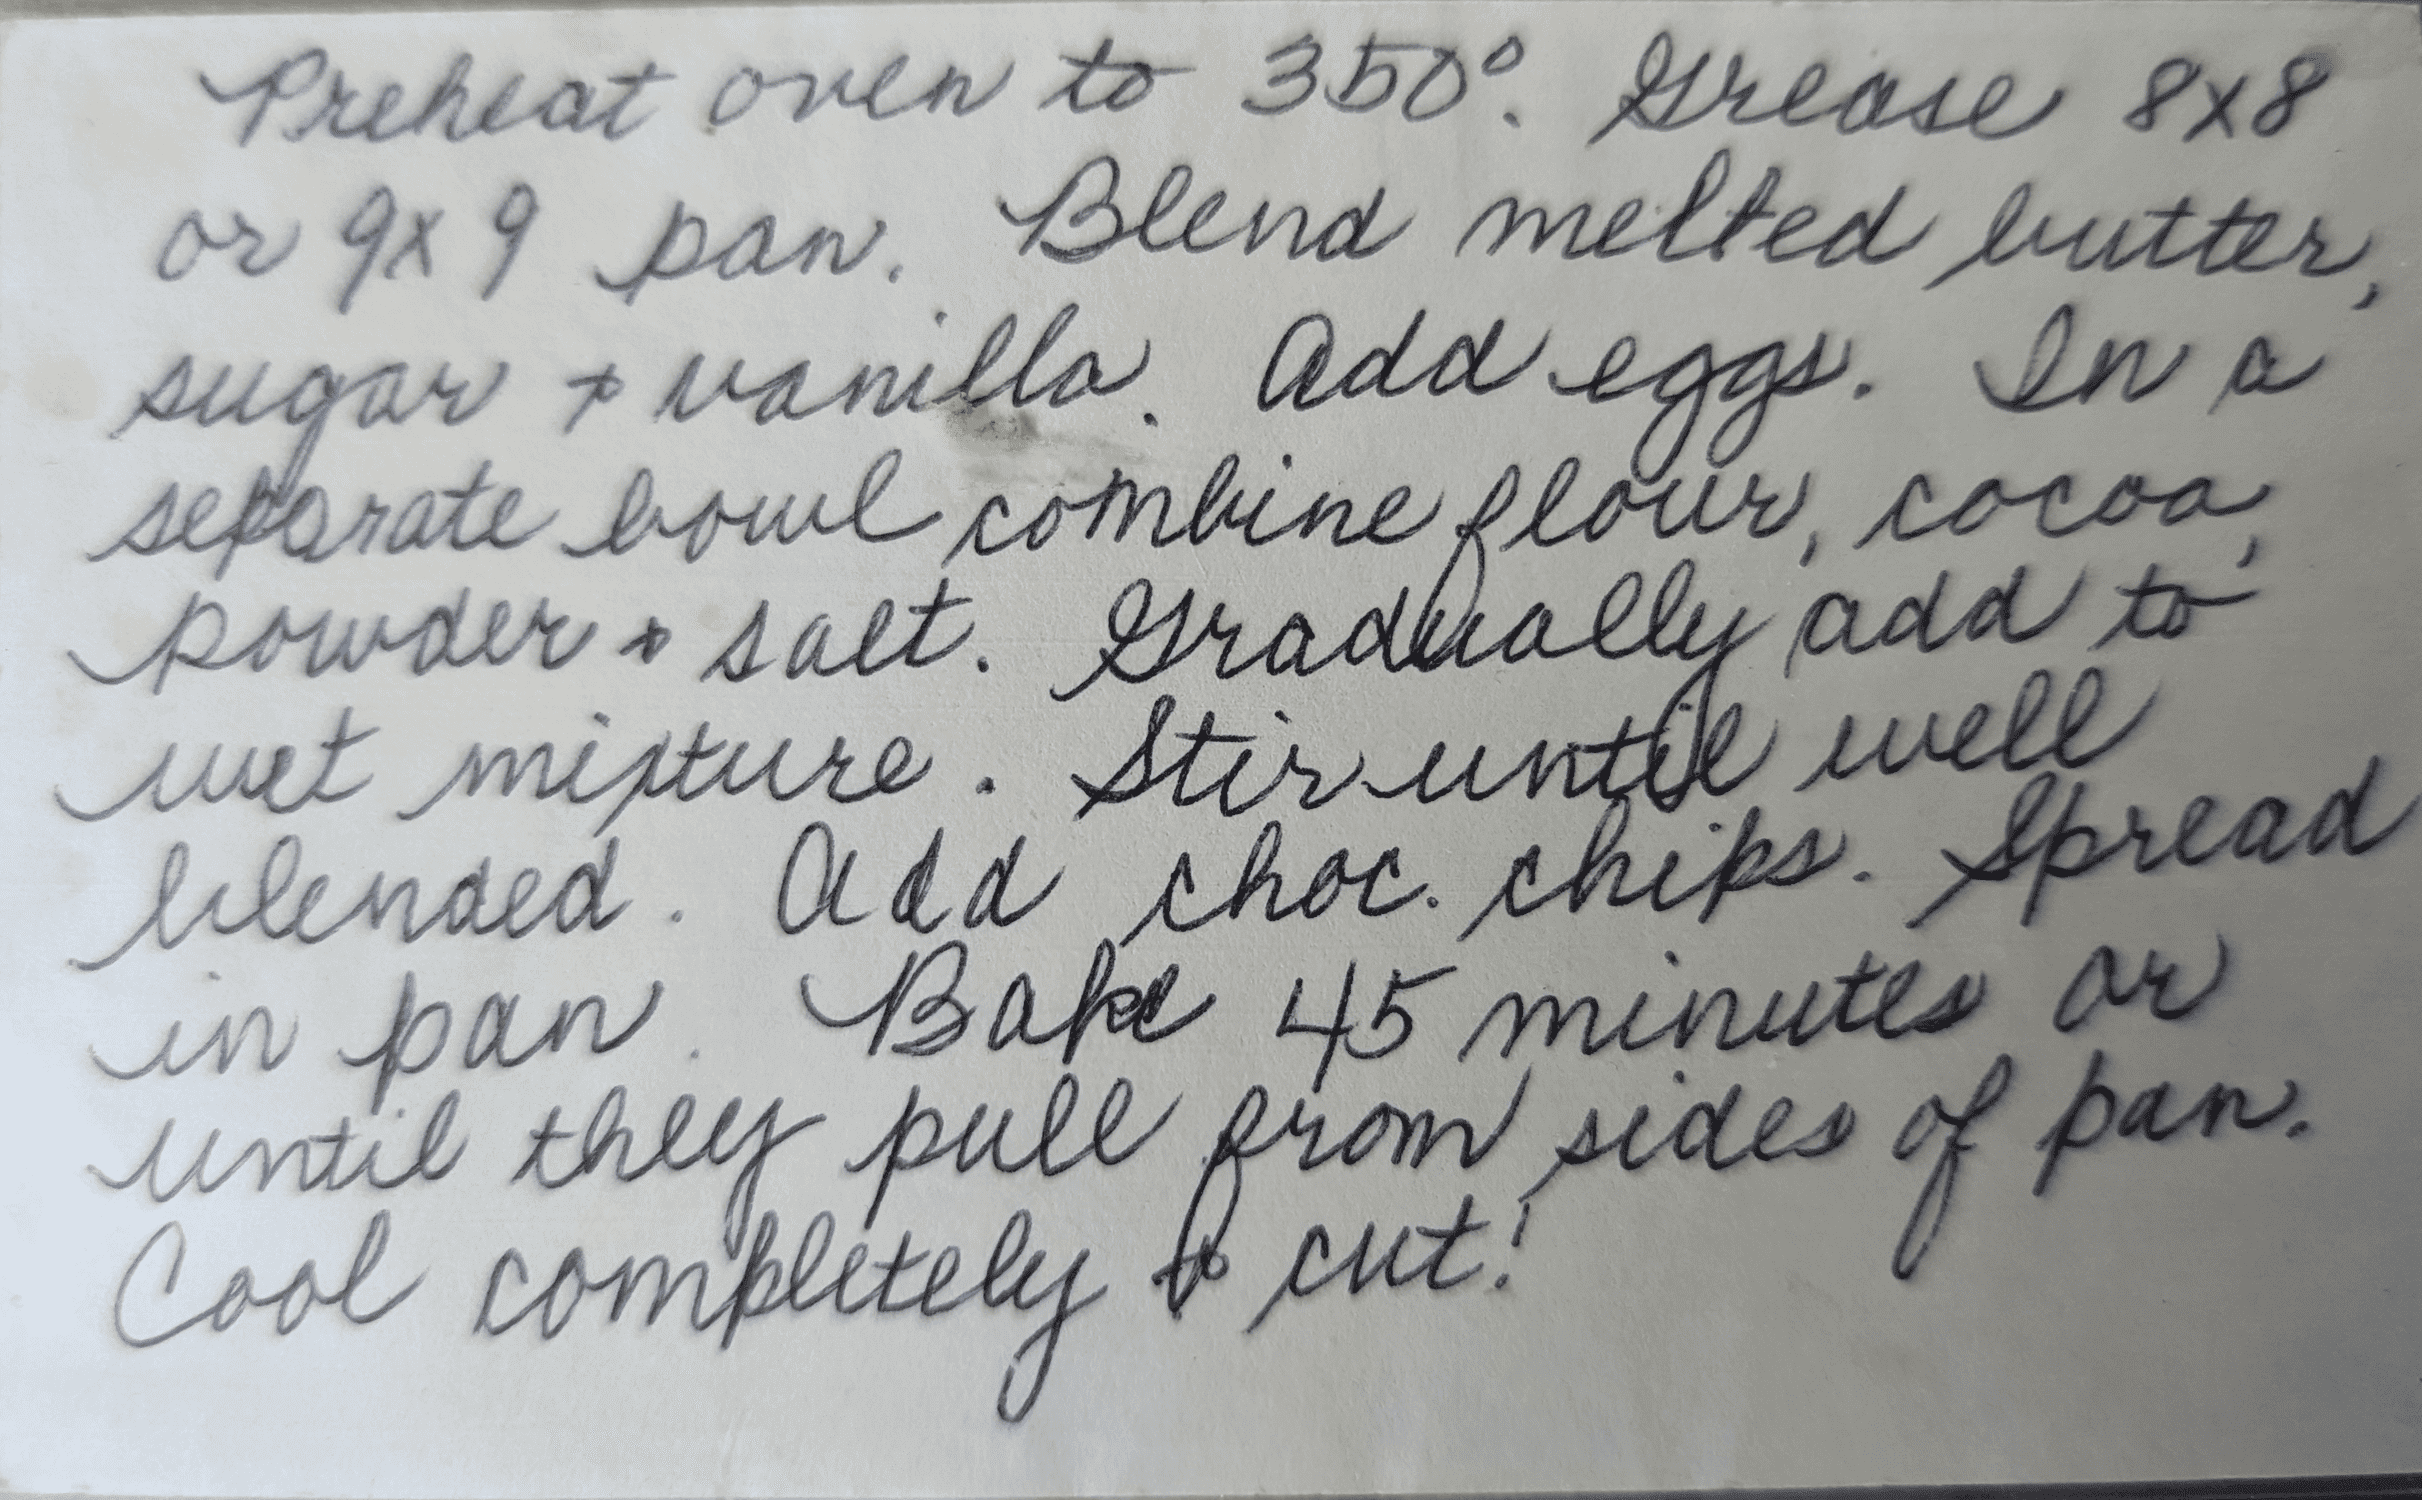 Preheat oven to 350°. Grease 8x8
or 9x9 pan. Blend melted butter,
sugar + vanilla. Add eggs. In a
separate bowl combine flour, cocoa,
powder + salt. Gradually add to
wet mixture. Stir until well
blended. Add choc. chips. Spread
in pan. Bake 45 minutes or
until they pull from sides of pan.
Cool completely + cut!